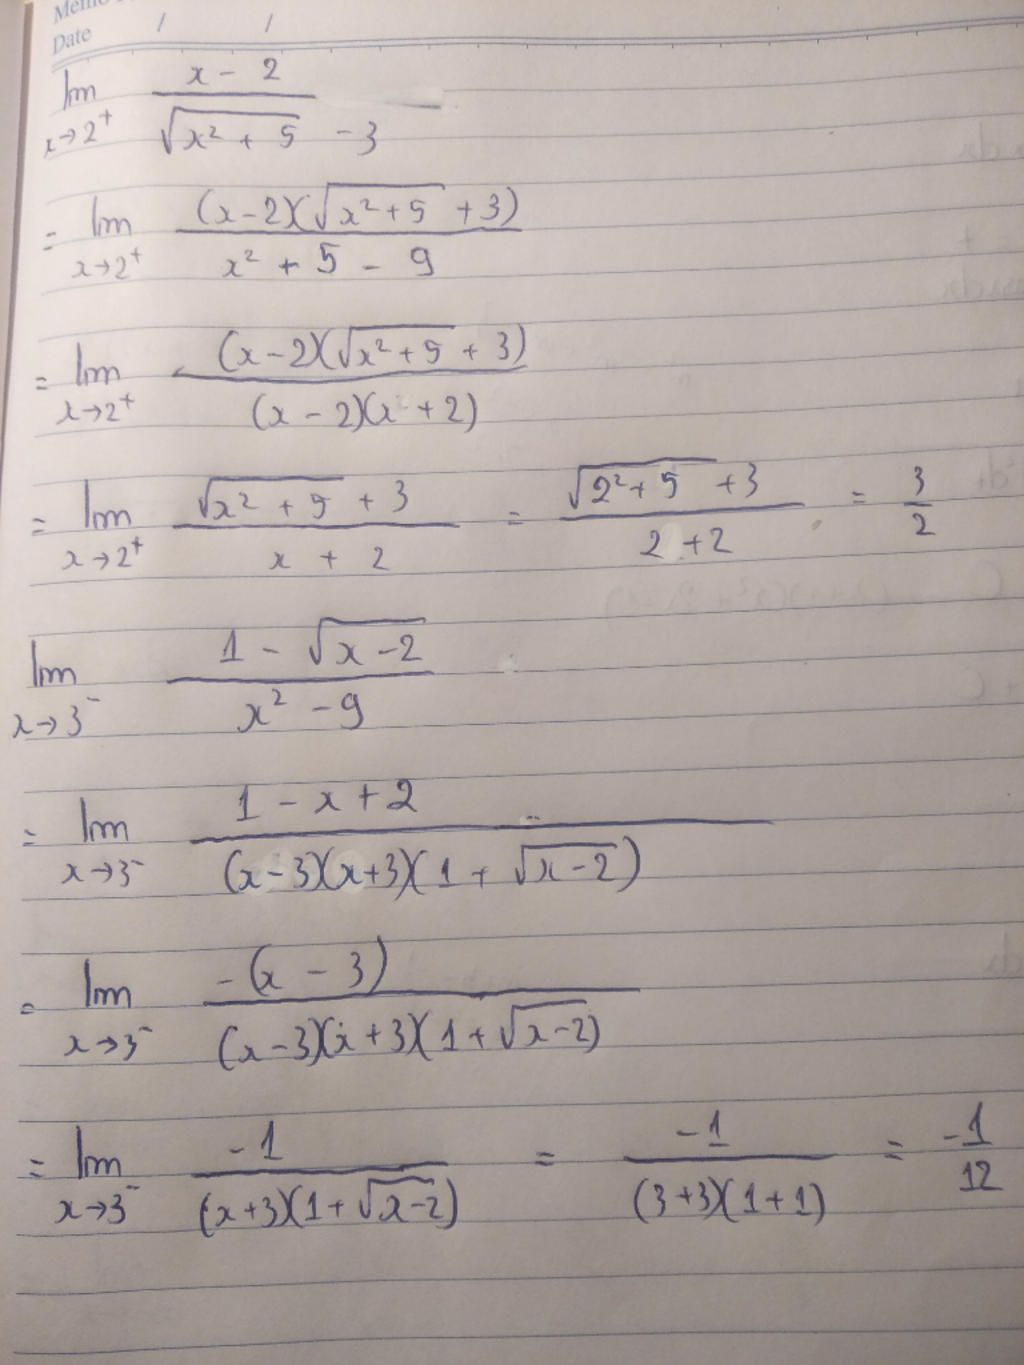 Memo
Date / /
lim x→2⁺ (x - 2)/(√(x² + 5) - 3)
= lim x→2⁺ ((x-2)(√(x²+5) + 3))/(x² + 5 - 9)
= lim x→2⁺ ((x-2)(√(x²+5) + 3))/((x - 2)(x + 2))
= lim x→2⁺ (√(x² + 5) + 3)/(x + 2) = (√(2²+5) + 3)/(2 + 2) = 3/2
lim x→3⁻ (1 - √(x-2))/(x² - 9)
= lim x→3⁻ (1 - x + 2)/((x-3)(x+3)(1 + √(x-2)))
= lim x→3⁻ (-(x - 3))/((x-3)(x+3)(1+√(x-2)))
= lim x→3⁻ (-1)/((x+3)(1+√(x-2))) = (-1)/((3+3)(1+1)) = -1/12